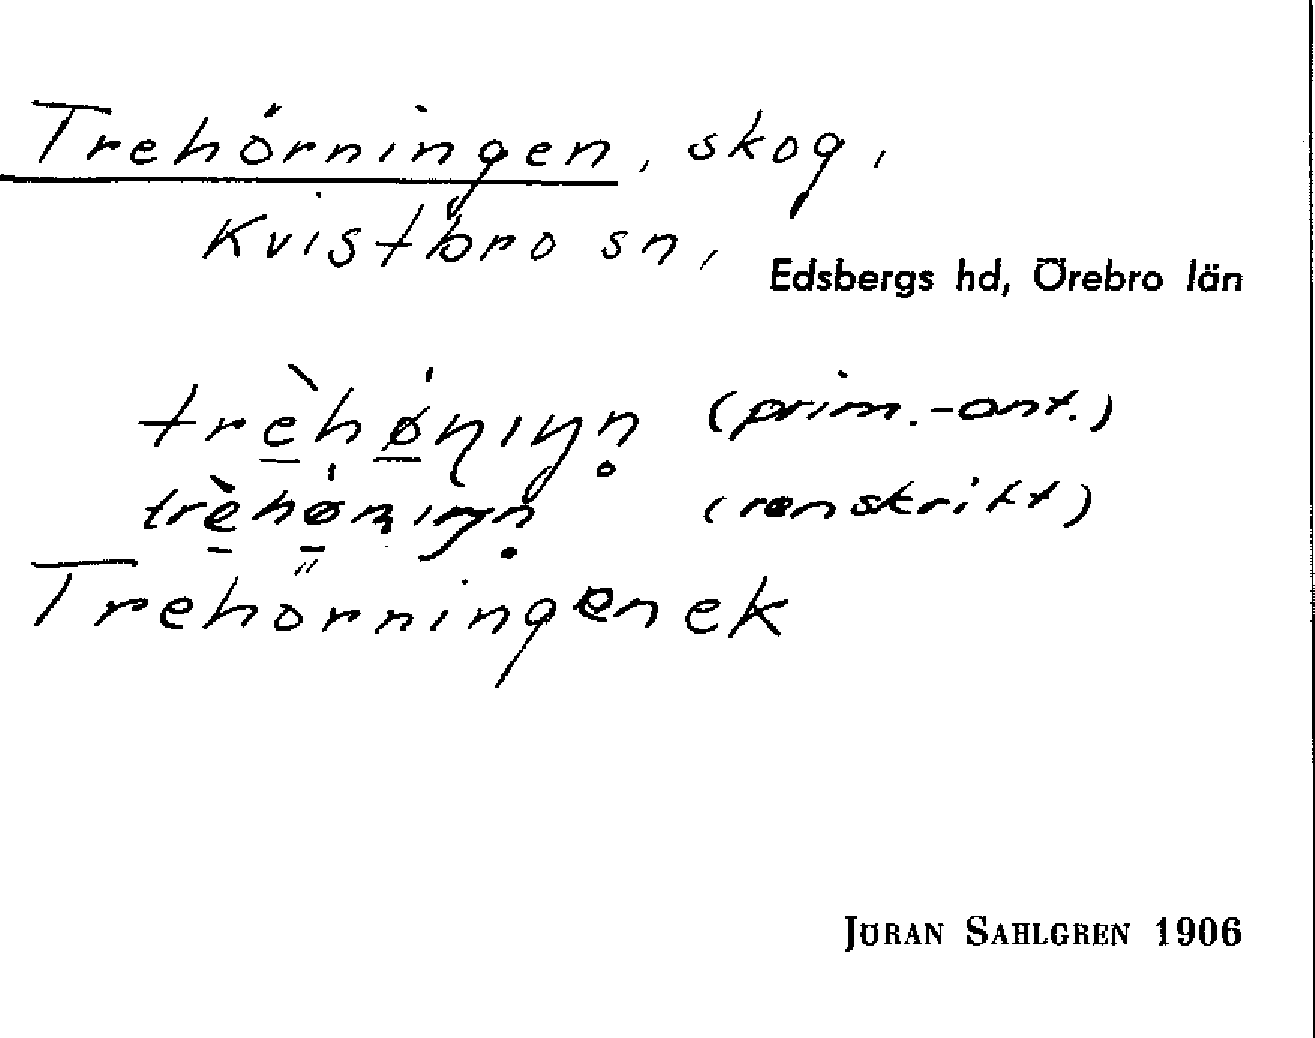 Trehörningen, skog,
Kvistbro sn,
Edsbergs hd, Örebro län
trèhø̀ɳıŋn̥ (prim.-ant.)
trèhø̀ɳıŋn̥ (renskrift)
Trehörningen ek
JÖRAN SAHLGREN 1906